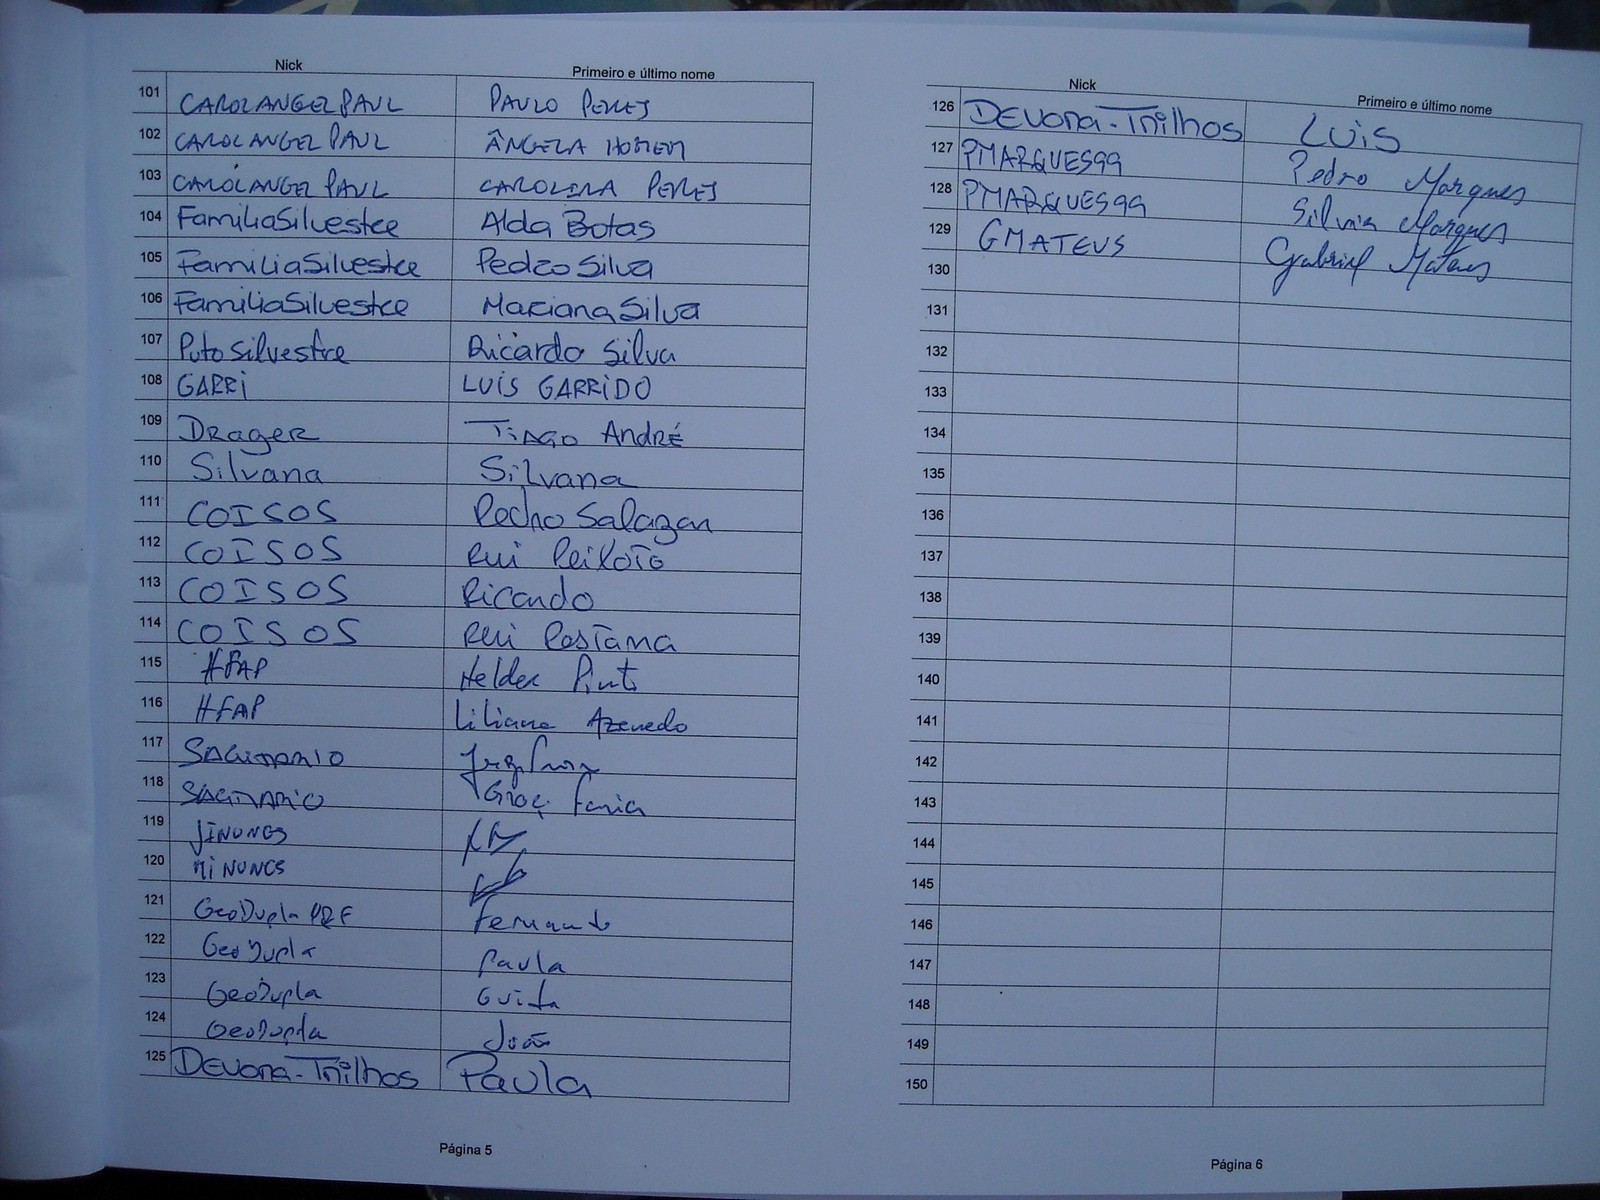 Nick Primeiro e último nome
101 CAROLANGELPAUL PAULO PERES
102 CAROLANGELPAUL ÂNGELA HOMEM
103 CAROLANGELPAUL CAROLINA PERES
104 FamiliaSilvestre Alda Botas
105 FamiliaSilvestre Pedro Silva
106 FamiliaSilvestre Mariana Silva
107 PutoSilvestre Ricardo Silva
108 GARRi LUÍS GARRiDO
109 DRageR TiAGO AndRÉ
110 Silvana Silvana
111 COISOS Pedro Salazar
112 COISOS Rui Peixoto
113 COISOS Ricardo
114 COISOS Rui Pestana
115 HFAP Helder Pinto
116 HFAP Liliana Azevedo
117 SAGITARIO
118 SAGITARIO Faria
119 JINUNES
120 MiNUNES
121 GeoDupla PRF Fernando
122 GeoDupla Paula
123 GeoDupla Guida
124 GeoDupla João
125 DEVORA-TRilhos Paula
Página 5
Nick Primeiro e último nome
126 DEVORA-TRilhos LUIS
127 PMARQUES99 Pedro Marques
128 PMARQUES99 Silvia Marques
129 GMATEUS Gabriel Mateus
130
131
132
133
134
135
136
137
138
139
140
141
142
143
144
145
146
147
148
149
150
Página 6